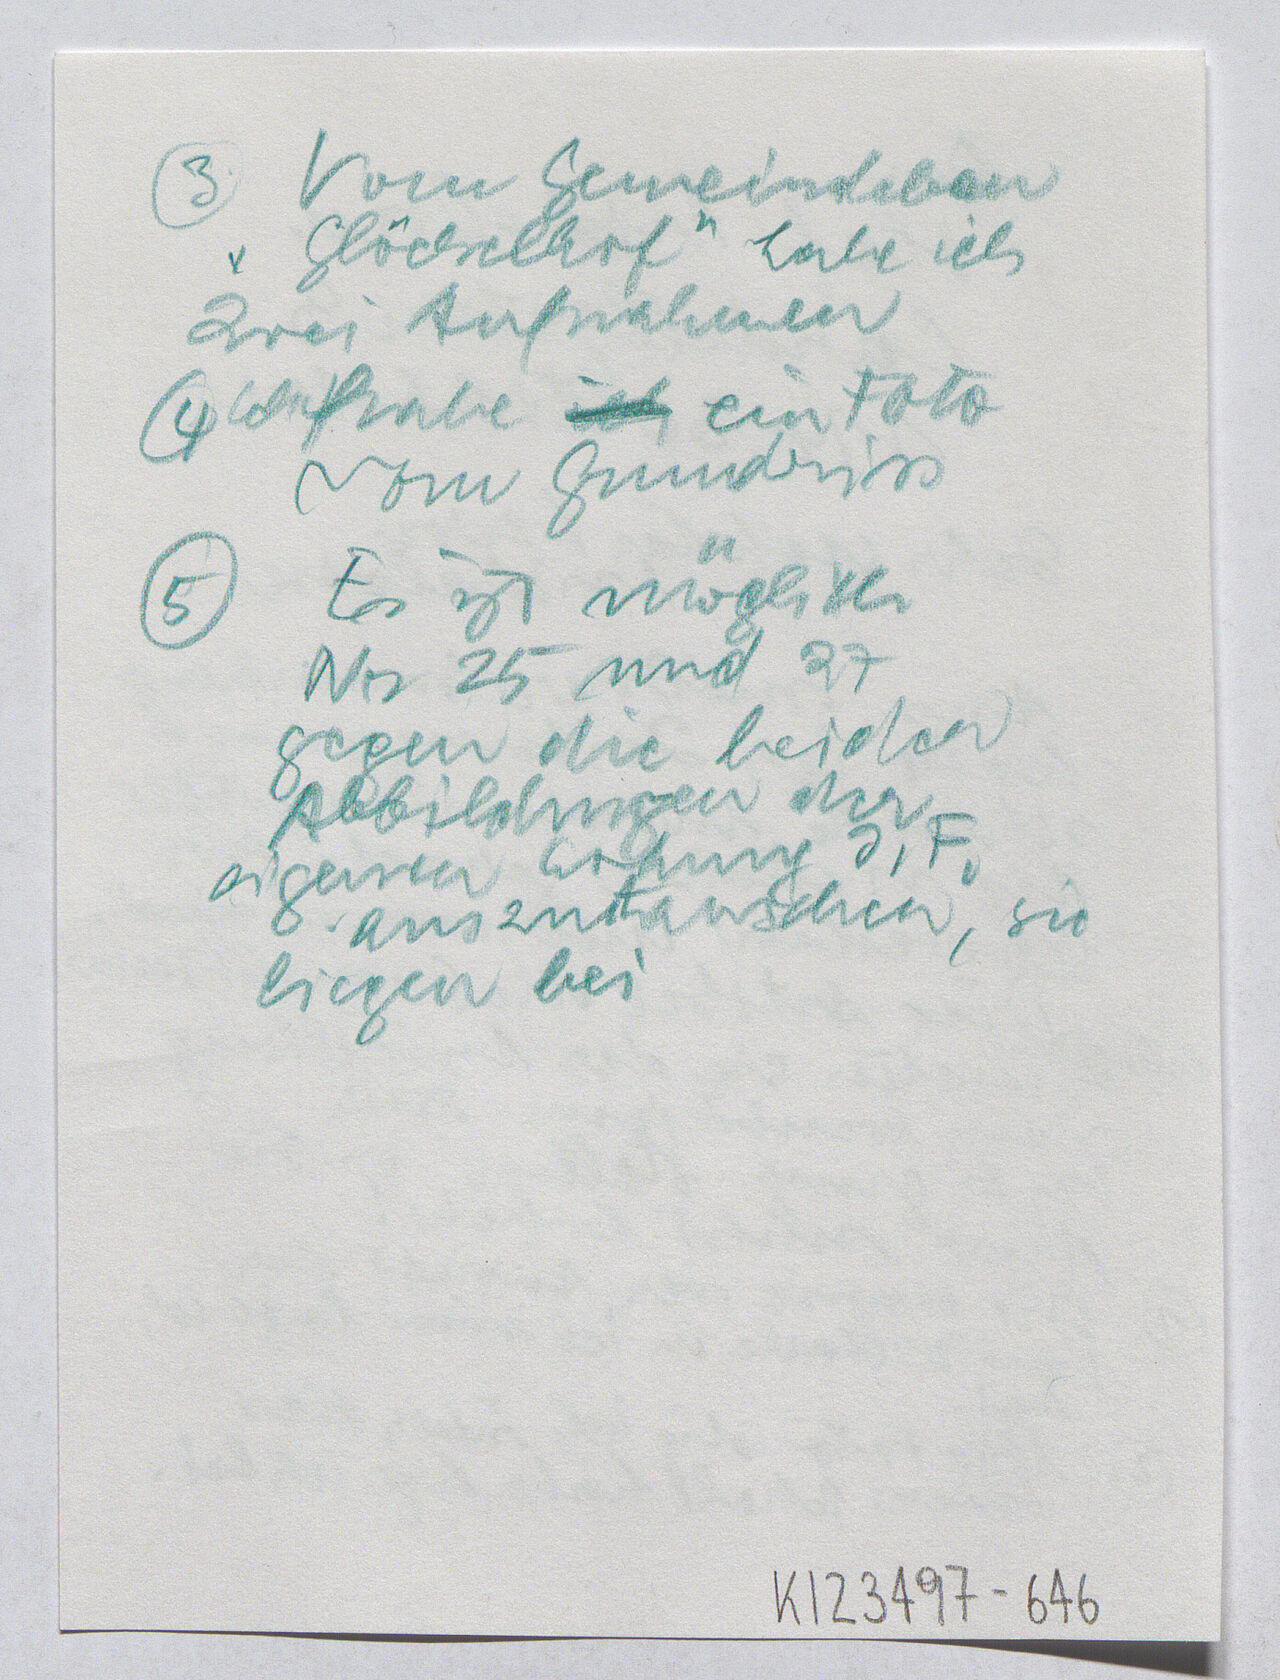 ③ Vom Gemeindebau
„Glöckelhof" habe ich
zwei Aufnahmen
④ Ich habe ein Foto
vom Grundriss
⑤ Es ist möglich
Nr 25 und 27
gegen die beiden
Abbildungen der
eigenen Wohnung J. F.
auszutauschen, sie
liegen bei
K123497-646